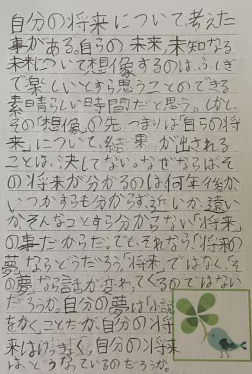 自分の将来について、考えた
事がある。自らの未来、未知なる
未来について想像するのは、ふしぎ
で楽しいとすら思うことのできる
素晴らしい時間だと思う。しかし、
その「想像」の先、つまりは「自らの将
来」について、結果が出される
ことは、決してない。なぜならばそ
の将来が分かるのは何年後か、
いつかすらも分からず、近いか、遠い
か、そんなことすら分からない「将来」
の事だからだ。でも、それなら「将来の
夢」ならどうだろう。「将来」ではなく、「そ
の夢」なら話が変わってくるのではない
だろうか。自分の夢は「小説
をかく」ことだが、自分の将
来はけっきょく、自分の将来
は、どうなっているのだろうか。